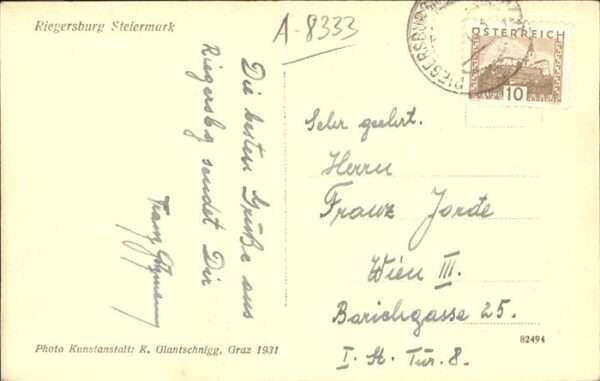 Riegersburg Steiermark
A-8333
RIEGERSBURG
ÖSTERREICH
10
Die besten Grüße aus
Riegersbg sendet Dir
Franz
Sehr geehrt.
Herrn
Franz Jorde
Wien III.
Barichgasse 25.
I. St. Tür. 8.
82494
Photo Kunstanstalt: K. Glantschnigg, Graz 1931